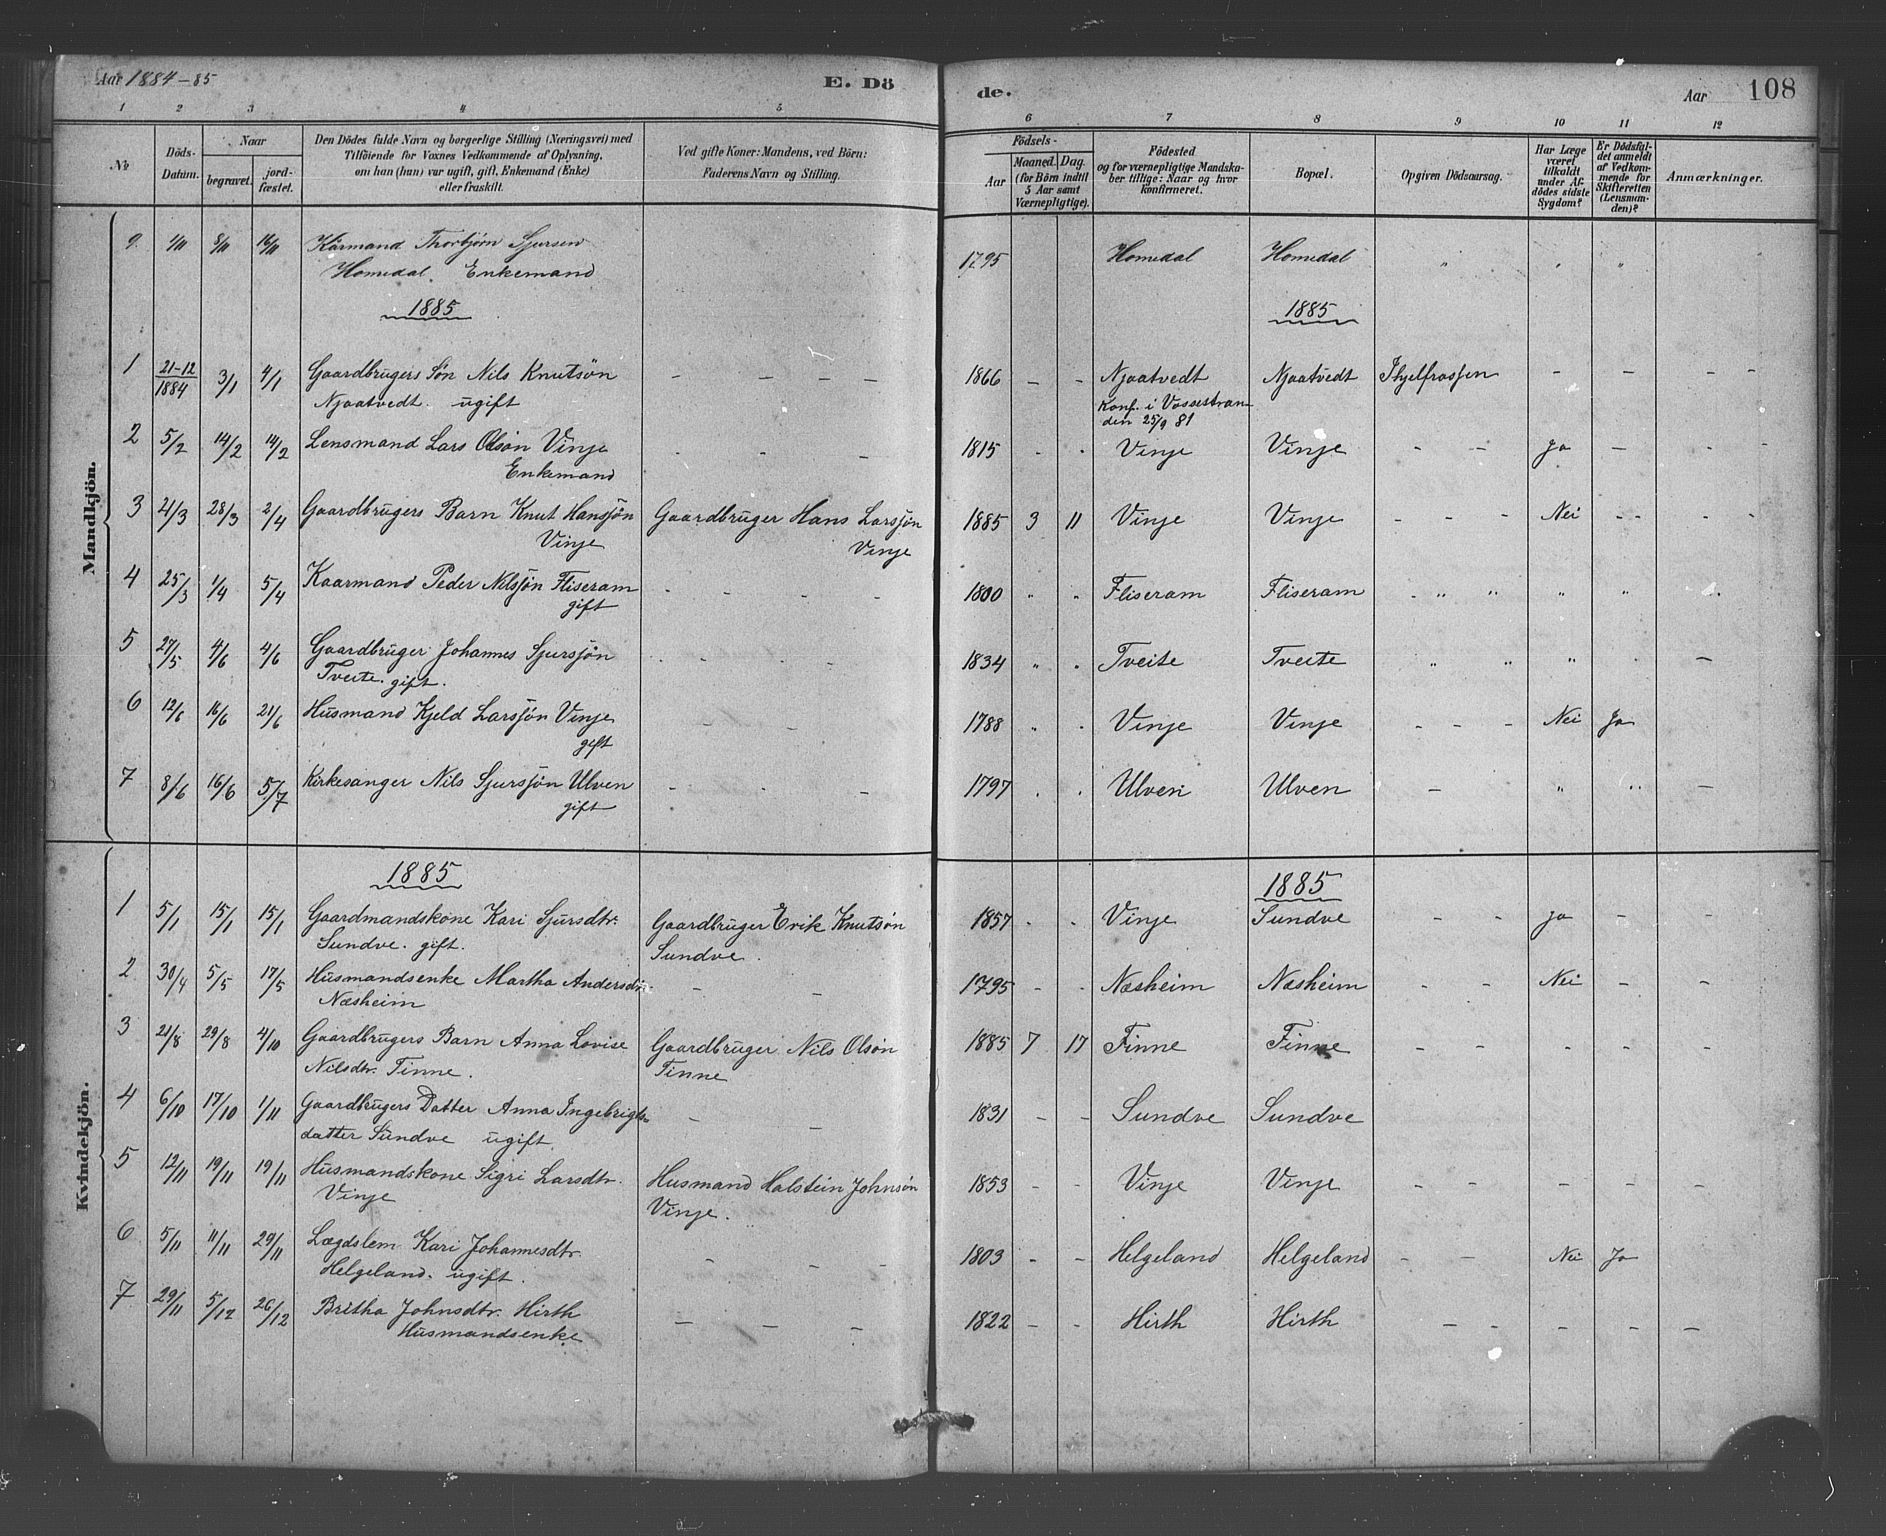 Aar 1884-85 E. Dö
de. Aar 108
1 2 3 4 5 6 7 8 9 10 11 12
No
Döds-
Datum.
Naar
begravet.
jord-
fæstet.
Den Dödes fulde Navn og borgerlige Stilling (Næringsvei) med
Tilföiende for Voxnes Vedkommende af Oplysning,
om han (hun) var ugift, gift, Enkemand (Enke)
eller fraskilt.
Ved gifte Koner: Mandens, ved Börn:
Faderens Navn og Stilling.
Födsels-
Aar
Maaned. Dag.
(for Börn indtil
5 Aar samt
Værnepligtige).
Födested
og for værnepligtige Mandska-
ber tillige: Naar og hvor
konfirmeret.
Bopæl.
Opgiven Dödsaarsag.
Har Læge
været
tilkaldt
under Af-
dödes sidste
Sygdom?
Er Dödsfal-
det anmeldt
af Vedkom-
mende for
Skifteretten
(Lensman-
den)?
Anmærkninger.
Mandkjön.
9. 1/11 8/11 16/11 Kårmand Thorbjørn Sjursen
Homedal. Enkemand
1795 Homedal Homedal " " "
1885
1885
1 21-12/1884 3/1 4/1 Gaardbrugers Søn Nils Knutsön
Njaatvedt. ugift
- - - - 1866 - - Njaatvedt Njaatvedt - - - -
Konf. i Vossestran-
den 25/9 81
2 5/2 14/2 14/2 Lensmand Lars Olsön Vinje
Enkemand
1815 Vinje Vinje - - Ja - - -
3 21/3 28/3 2/4 Gaardbrugers Barn Knut Hansjön
Vinje
Gaardbruger Hans Larsjön
Vinje
1885 3 11 Vinje Vinje - - - Nei - - - -
4 25/3 1/4 5/4 Kaarmand Peder Nilsjön Fliseram
gift
1800 " " Fliseram Fliseram " " " "
5 27/5 4/6 4/6 Gaardbruger Johannes Sjursjön
Tveite. gift.
1834 " " Tveite Tveite " " " -
6 12/6 16/6 21/6 Husmand Kjeld Larsjön Vinje
gift
- - 1788 Vinje Vinje - - - Nei Ja - -
7 8/6 16/6 5/7 Kirkesanger Nils Sjursjön Ulven
gift
- - 1797 Ulven Ulven - " " -
Kvindekjön.
1885
1885
1 5/1 15/1 15/1 Gaardmandskone Kari Sjursdtr.
Sundve. gift.
Gaardbruger Erik Knutsøn
Sundve.
1857 - - Vinje Sundve - - Ja - -
2 30/4 5/5 17/5 Husmandsenke Martha Andersdtr.
Næsheim
- - 1795 - - Næsheim Næsheim - - Nei - -
3 21/8 29/8 4/10 Gaardbrugers Barn Anna Lovise
Nilsdtr. Finne.
Gaardbruger Nils Olsön
Finne
1885 7 17 Finne Finne - - - - -
4 6/10 17/10 1/11 Gaardbrugers Datter Anna Ingebrigts-
datter Sundve ugift
- - 1831 - - Sundve Sundve
5 12/11 19/11 19/11 Husmandskone Sigri Larsdtr.
Vinje
Husmand Halstein Johnsön
Vinje.
1853 - - Vinje Vinje - - - - -
6 5/11 11/11 29/11 Lægdslem Kari Johannesdtr.
Helgeland. ugift.
- - - 1803 - - Helgeland Helgeland - - Nei Ja -
7 29/11 5/12 26/12 Britha Johnsdtr. Hirth
Husmandsenke
- - - 1822 - - Hirth Hirth - - - - -